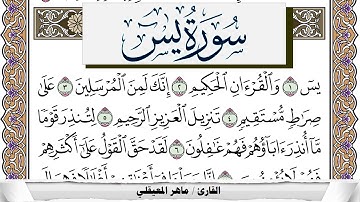 سورة يس
يسٓ ١ وَالْقُرْءَانِ الْحَكِيمِ ٢ إِنَّكَ لَمِنَ الْمُرْسَلِينَ ٣ عَلَىٰ
صِرَاطٍ مُّسْتَقِيمٍ ٤ تَنزِيلَ الْعَزِيزِ الرَّحِيمِ ٥ لِتُنذِرَ قَوْمًا
مَّآ أُنذِرَ ءَابَآؤُهُمْ فَهُمْ غَٰفِلُونَ ٦ لَقَدْ حَقَّ الْقَوْلُ عَلَىٰٓ أَكْثَرِهِمْ
القارئ / ماهر المعيقلي